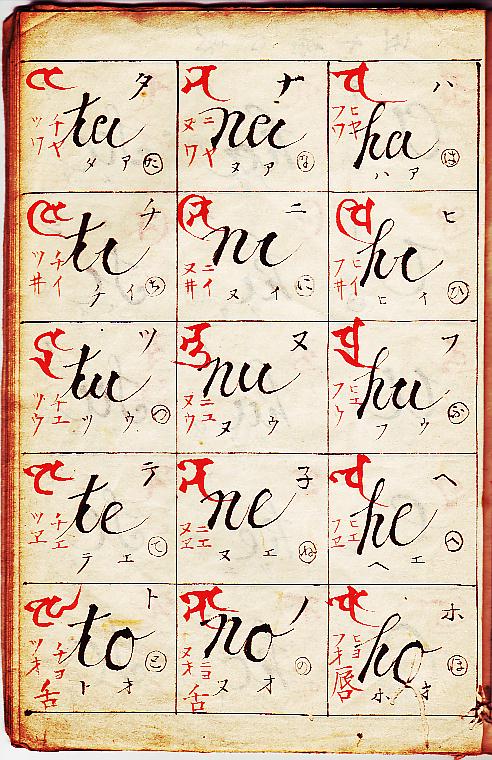 タ
ta
チヤ
ツワ
タ ア た
ナ
na
ニヤ
ヌワ
ヌ ア な
ハ
ha
ヒヤ
フワ
ハ ア は
チ
ti
チイ
ツ井
チ イ ち
ニ
ni
ニイ
ヌ井
ヌ イ に
ヒ
hi
ヒイ
フ井
ヒ イ ひ
ツ
tu
チエ
ツウ
ツ ゥ つ
ヌ
nu
ニユ
ヌウ
ヌ ウ
フ
hu
ヒエ
フウ
フ ウ ふ
テ
te
チエ
ツヱ
テ エ て
子
ne
ニエ
ヌヱ
ヌ エ ね
ヘ
he
ヒエ
フヱ
ヘ エ へ
ト
to
チヨ
ツオ
舌
ト オ と
ノ
no
ニヨ
ヌオ
舌
ヌ オ の
ホ
ho
ヒヨ
フオ
唇
ホ オ ほ